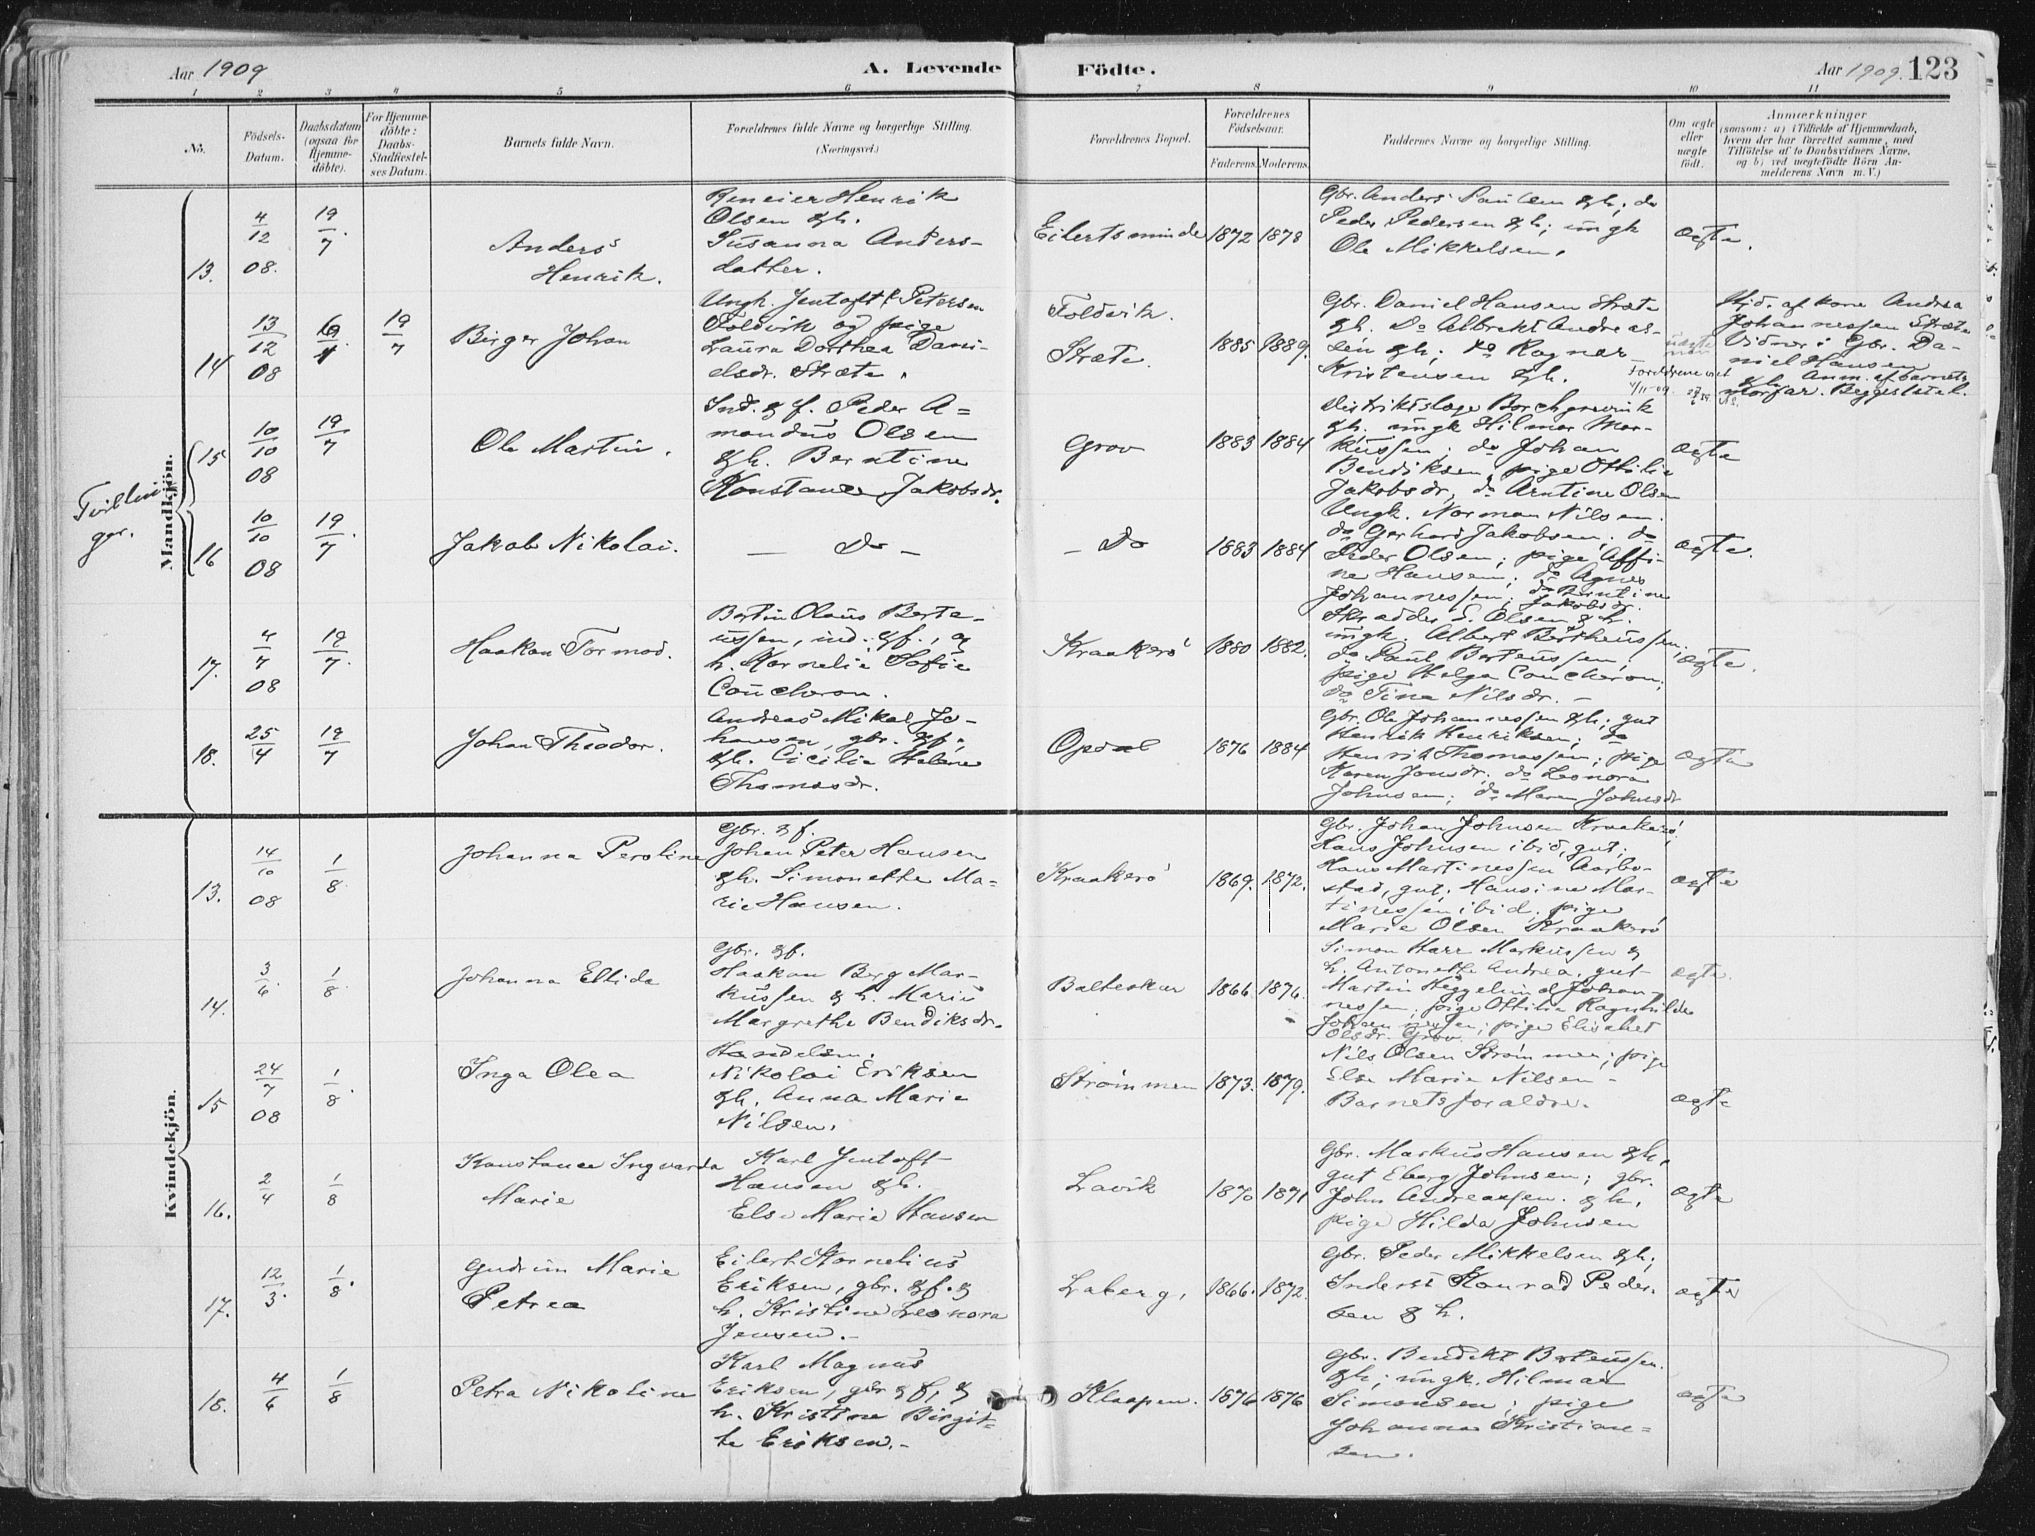 Aar 1909
A. Levende
Födte.
Aar 1909. 123
1 2 3 4 5 6 7 8 9 10 11
No.
Födsels-
Datum.
Daabsdatum
(ogsaa for
Hjemme-
döbte).
For Hjemme-
döbte:
Daabs-
Stadfæstel-
ses Datum.
Barnets fulde Navn.
Forældrenes fulde Navne og borgerlige Stilling.
(Næringsvei.)
Forældrenes Bopæl.
Forældrenes
Födselsaar.
Faderens. Moderens.
Faddernes Navne og borgerlige Stilling.
Om ægte
eller
uægte
födt.
Anmærkninger
(saasom: a) i Tilfælde af Hjemmedaab,
hvem der har forrettet samme, med
Tilföielse af to Daabsvidners Navne,
og b) ved uægtefödte Börn An-
melderens Navn m. V.)
Mandkjön.
13.
4/12 08.
19/7.
Anders
Henrik.
Olsen gh.
Susanna Anders-
datter.
Eilertsminde
1872 1878
Gbr. Anders Paulsen gh; do
Peder Pedersen gh; ungk
Ole Mikkelsen.
ægte.
14
13/12 08
19/7
Birger Johan
Ungk. Jentoft Petersen
Foldvik og pige
Laura Dorthea Dani-
elsdr. Stræte.
Foldvik.
Stræte.
1885 1889.
Gbr. Daniel Hansen Stræte
gh. Do Albrekt Andreas-
sen gh; do Ragnar
Kristensen gh.
Hjd. af kone Andrea
Johannessen Stræte
Vidner: Gbr. Da-
niel Hansen
Anm. af barnets
morfar.
Tvillin
ger.
15
10/10 08
19/7
Ole Martin.
Ind. & f. Peder A=
mandus Olsen
gh. Berntine
Konstance Jakobsdr.
Grov
1883 1884
Distriktslæge Borchgrevink
gh. ungk Hilmar Mar-
kussen; do Johan
Bendiksen, pige Othilie
Jakobsdr, do Arntine Olsen
ægte
16
10/10 08
19/7
Jakob Nikolai.
— Do —
— Do
1883 1884
Ungk. Norman Nilsen.
do Gerhard Jakobsen; do
Peder Olsen; pige Affi-
ne Hansen; do Agnes
Johannessen; do Berntine
Jakobsdr.
ægte.
17.
4/7 08
19/7.
Haakon Tormod.
Bertin Olaus Berte-
ussen, ind. & f., og
h. Kornelie Sofie
Coucheron.
Kraakerö
1880 1882.
Skrædder S. Olsen & h.
ungk. Albert Bertheussen.
do Paul Berteussen,
pige Helga Coucheron;
do Tina Nilsdr. —
ægte.
18.
25/4
19/7
Johan Theodor.
Andreas Mikal Jo-
hansen, gbr. & f;
gh. Cicilie Helene
Thomasdr.
Opdal
1876 1884
Gbr. Ole Johannessen gh; gut
Henrik Henriksen; do
Henrik Thomassen; pige
Karen Jonsdr; do Leonora
Johnsen; do Maren Johnsdr
ægte
Kvindekjön.
13.
14/10 08
1/8.
Johanna Peroline
Gbr. & f.
Johan Peter Hansen
gh. Simonette Ma=
rie Hansen.
Kraakerö
1869. 1872.
Gbr. Johan Johnsen Kraakerö,
Hans Johnsen ibid, gut;
Hans Martinessen Aarbo-
stad, gut; Hansine Mar-
tinessen ibid; pige
Marie Olsen Kraakerö
ægte
14.
3/6.
1/8.
Johanna Ellida
Gbr. & f.
Haakon Berg Mar-
kussen & h. Marie
Margrethe Bendiksdr.
Balteskar
1866. 1876.
Simon Harr Markussen &
h. Antonette Andrea, gut
Martin Heggelund Johan-
nessen; pige Othilie Ragnhilda
Johannessen; pige Elisabet
Olsdr. Grov.
ægte.
15
24/7 08
1/8.
Inga Olea
Handelsm.
Nikolai Eriksen
gh. Anna Marie
Nilsen.
Strömmen
1873. 1879.
Nils Olsen Strömmen; pige
Else Marie Nilsen —
Barnets forældre.
ægte
16.
2/4
1/8
Konstance Ingvarda
Marie
Karl Jentoft
Hansen gh.
Else Marie Hansen
Lavik
1870 1871
Gbr. Markus Hansen gh,
gut Eberg Johnsen; gbr.
John Andreassen. gh,
pige Hilda Johnsen
ægte
17.
12/3.
1/8.
Gudrun Marie
Petrea
Eilert Kornelius
Eriksen, gbr. & f. &
h. Kristine Leonora
Jensen. —
Laberg,
1866. 1872.
Gbr. Peder Mikkelsen gh;
Inderst Konrad Peder-
sen & h.
ægte
18.
4/6
1/8
Petra Nikoline
Karl Magnus
Eriksen, gbr & f, &
h. Kristine Birgit-
te Eriksen. —
Klaapen.
1876 1876
Gbr. Bendikt Berteussen.
gh; ungk. Hilmar
Simonsen; pige
Johanna Kristian=
sen.
ægte